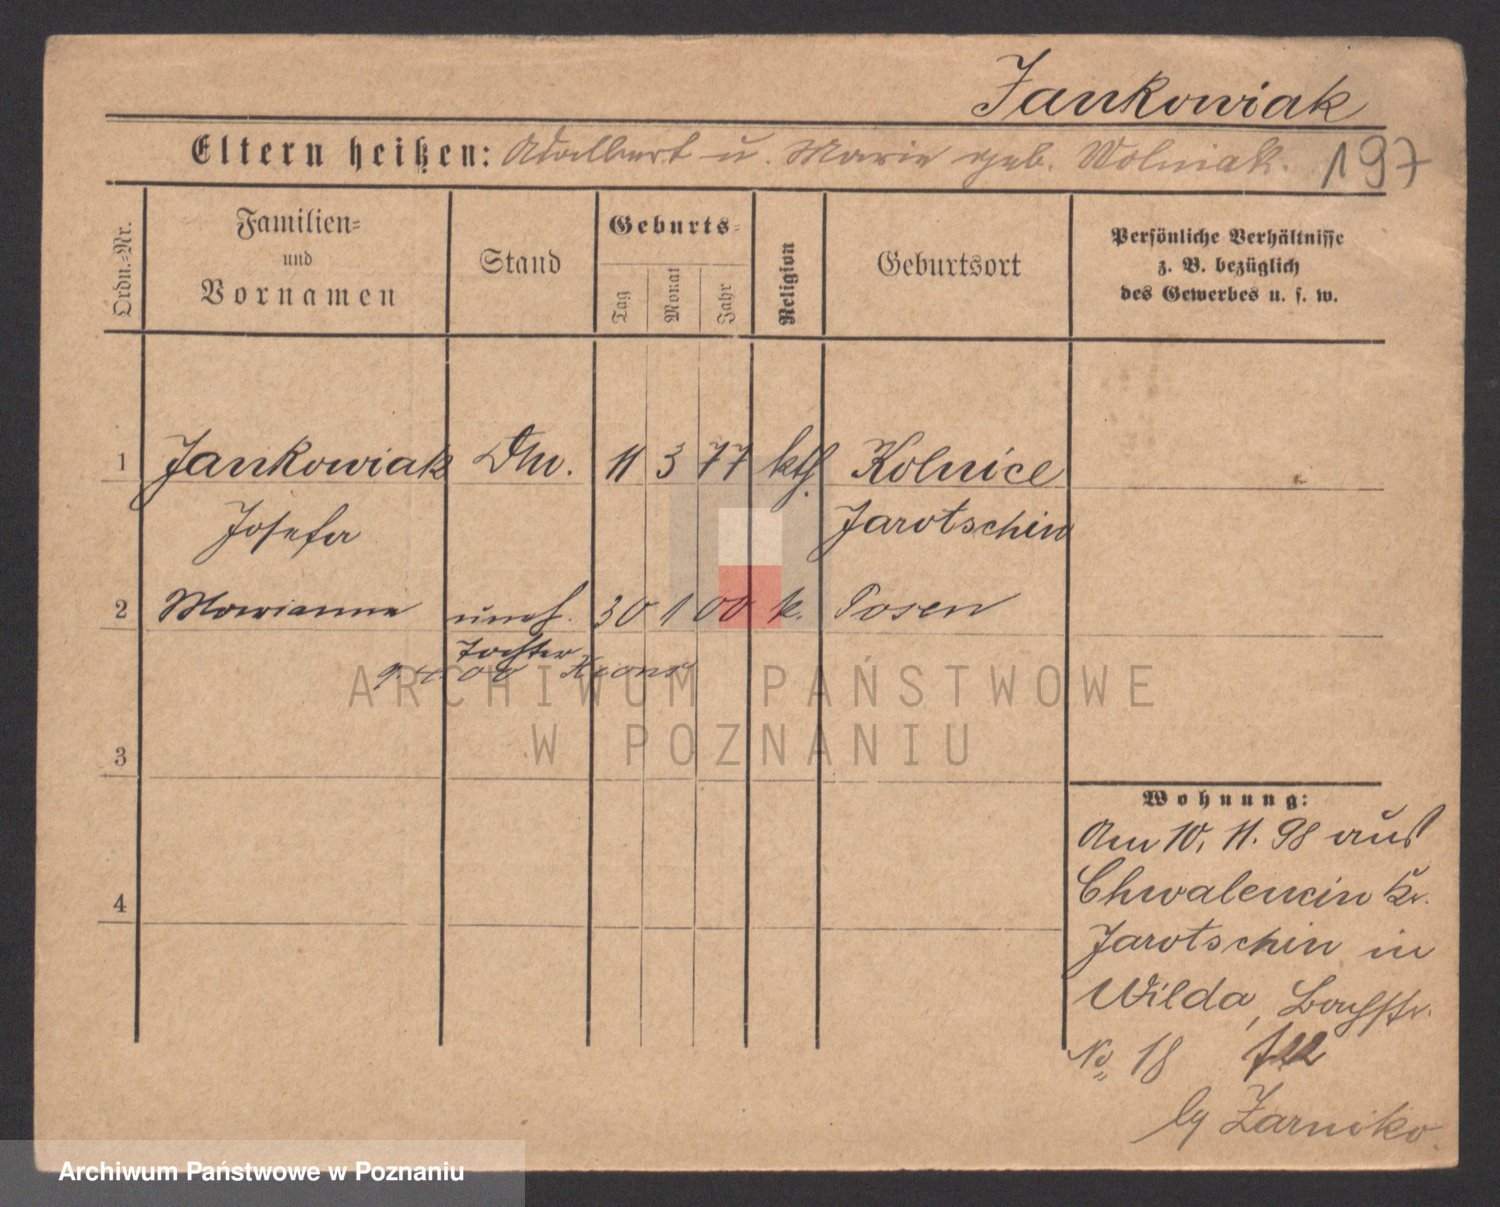 Jankowiak
Eltern heißen: Adalbert u. Marie geb. Wolniak. 197
Ordn.-Nr.
Familien- und Vornamen
Stand
Geburts-
Tag
Monat
Jahr
Religion
Geburtsort
Persönliche Verhältnisse
z. B. bezüglich
des Gewerbes u. s. w.
1 Jankowiak 11 3 77 kth. Kolnice
Josefa Jarotschin
2 Marianne uneh. 30 1 00 k. Posen
Tochter
ARCHIWUM PAŃSTWOWE
W POZNANIU
3
Wohnung:
Am 10. 11. 98 aus
Chwalencin Kr.
4
Jarotschin in
Wilda,
No 18
Archiwum Państwowe w Poznaniu